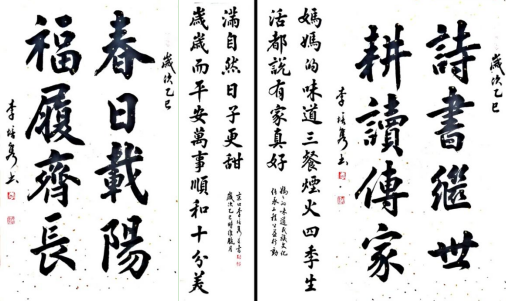 歲次乙巳
詩書繼世
耕讀傳家
媽媽的味道三餐煙火四季生
活都說有家真好
媽媽的味道民族文化
歲歲而平安萬事順和十分美
滿自然日子更甜
歲次乙巳
春日載陽
福履齊長